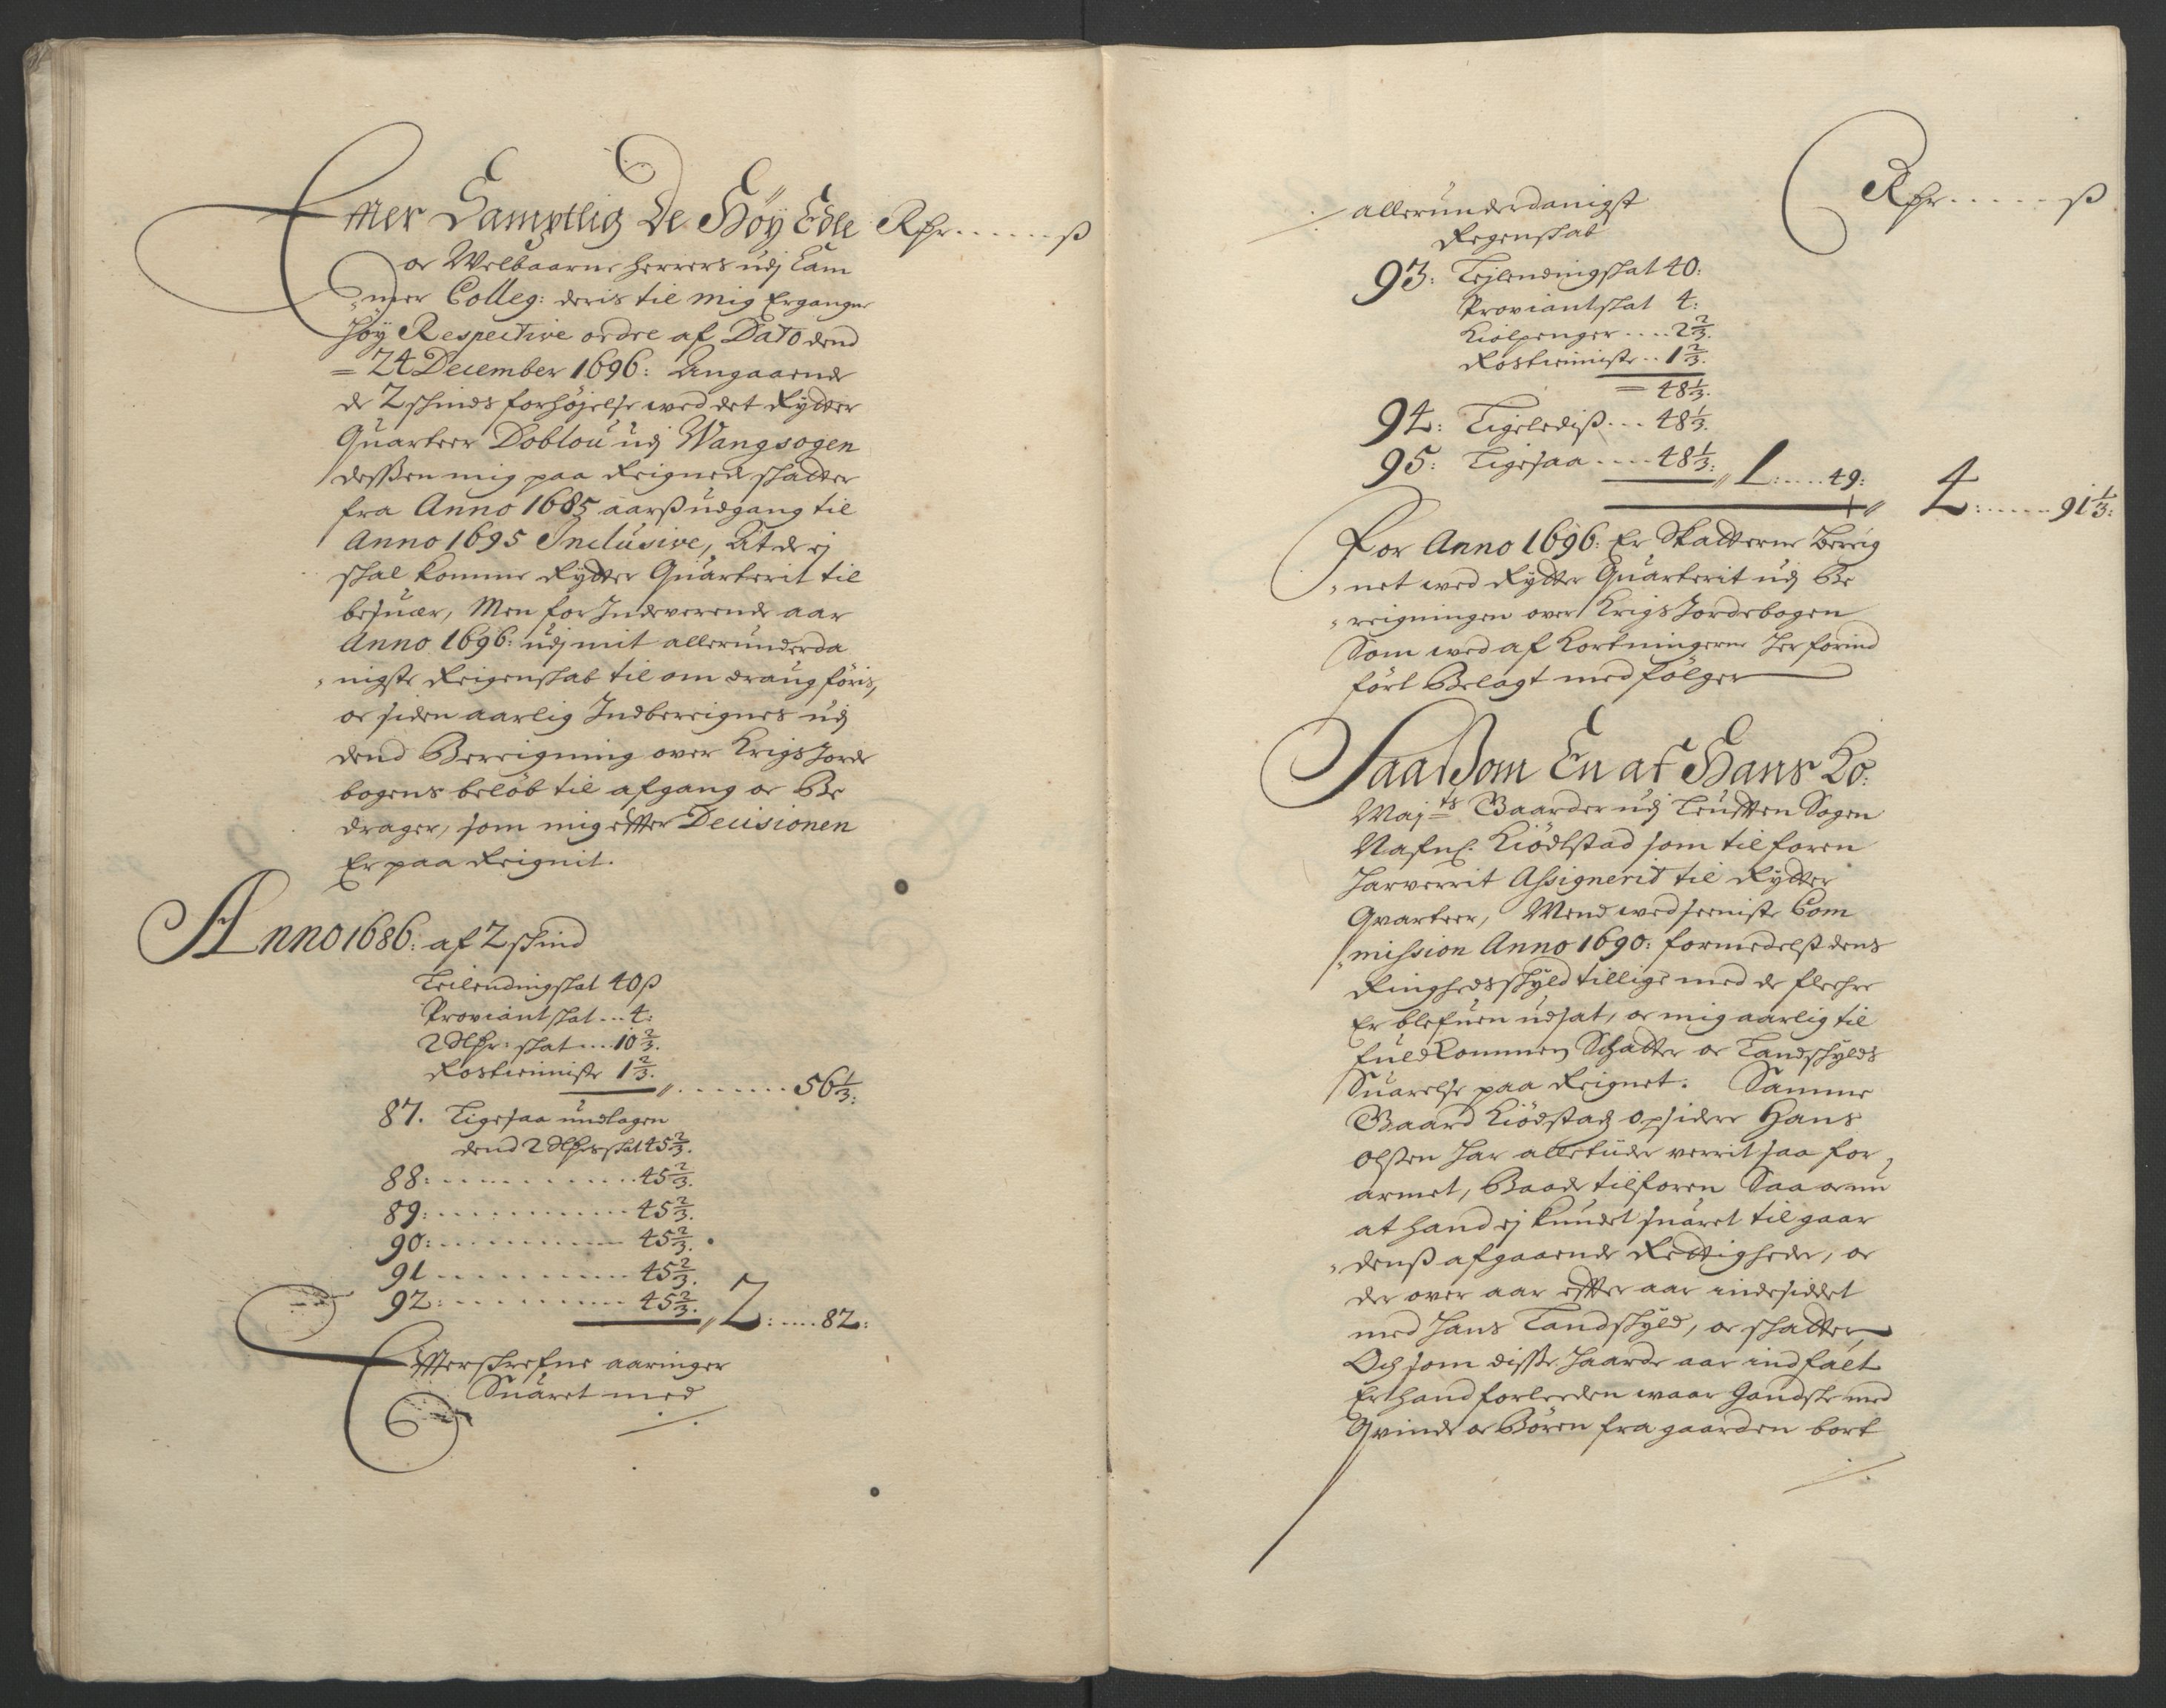 Effter Samptlig De Höy Edle Rdr ...... ß
oc Welbaarne herrers udj Cam
„mer Colleg: deris til mig Ergangne
Höy Respective ordre af Dato dend
= 24 December 1696: Angaaende
de 2 schinds forhøjelse wed det Rytter
Quarteer Doblou udj Wangsogen
desßen mig paa Reignede schatter
fra Anno 1685 aarß udgang til
Anno 1695 Inclusive, At de ej
schal komme Rytter Quarterit til
besuær, Men for Indeverende aar
Anno 1696: udj mit allerunderda
„nigste Reigenschab til om draug föris,
oc siden aarlig Indbereignes udj
dend Bereigning over Krigs Jorde
bogens beløb til afgang oc Be
drager, som mig effter Decisionen
Er paa Reignit.
Anno 1686: af 2 schind
Leilendingschat 40 ß
Proviantschat ... 4:
2 Rdr: schat ... 10 2/3.
Rostieniste 1 2/3.
„ ........ 56 1/3:
87. Ligesaa undtagen
dend 2 Rdrs schat 45 2/3.
88: ............ 45 2/3.
89: ............ 45 2/3.
90: ............ 45 2/3.
91 ............ 45 2/3.
92: ............ 45 2/3. „ 2: .... 82:
Effterschrefne aaringer
Suaret med
allerunderdanigst Rdr ..... ß
Regenschab
93: Lejlendingschat 40:
Proviantschat 4:
Kiölpenger .... 2 2/3.
Rostieniste .. 1 2/3.
= 48 1/3.
94: Ligelediß ... 48 1/3.
95: Ligesaa .... 48 1/3: „ 1: .... 49:
„ 4: ..... 91 1/3:
For Anno 1696: Er Skatterne Bereig
„net wed Rytter Quarterit udj Be
„reigningen over Krigs Jordebogen
Som wed af Kortningerne Her forind
fört Belagt medfölger
Saa ßom En af Hans Ko:
Maj:ts Gaarder udj Leuten Sogen
Nafnl. Kiödstad som til foren
Harverrit Assignerit til Rytter
Qvarteer, Mend wed seeniste Com
„mission Anno 1690: formedelst dens
Ringheds schyld tillige med de fleehre
Er blefuen udsat, oc mig aarlig til
fuldkommen Schatter oc Landschylds
Suarelse paa Reignet. Samme
Gaard Kiödstad opsidere Hans
Olsten Har alletiide verrit saa for„
armet, Baade tilforen Saa oc nu
at hand ej kundet suaret til gaar
„denß afgaaende Rettigheder, oc
der over aar effter aar indesiddet
med hans Landschyld, oc schatter,
Och som disse haarde aar indfalt
Er hand forleeden waar Gandske med
Qvinde oc Börn fra gaarden bort